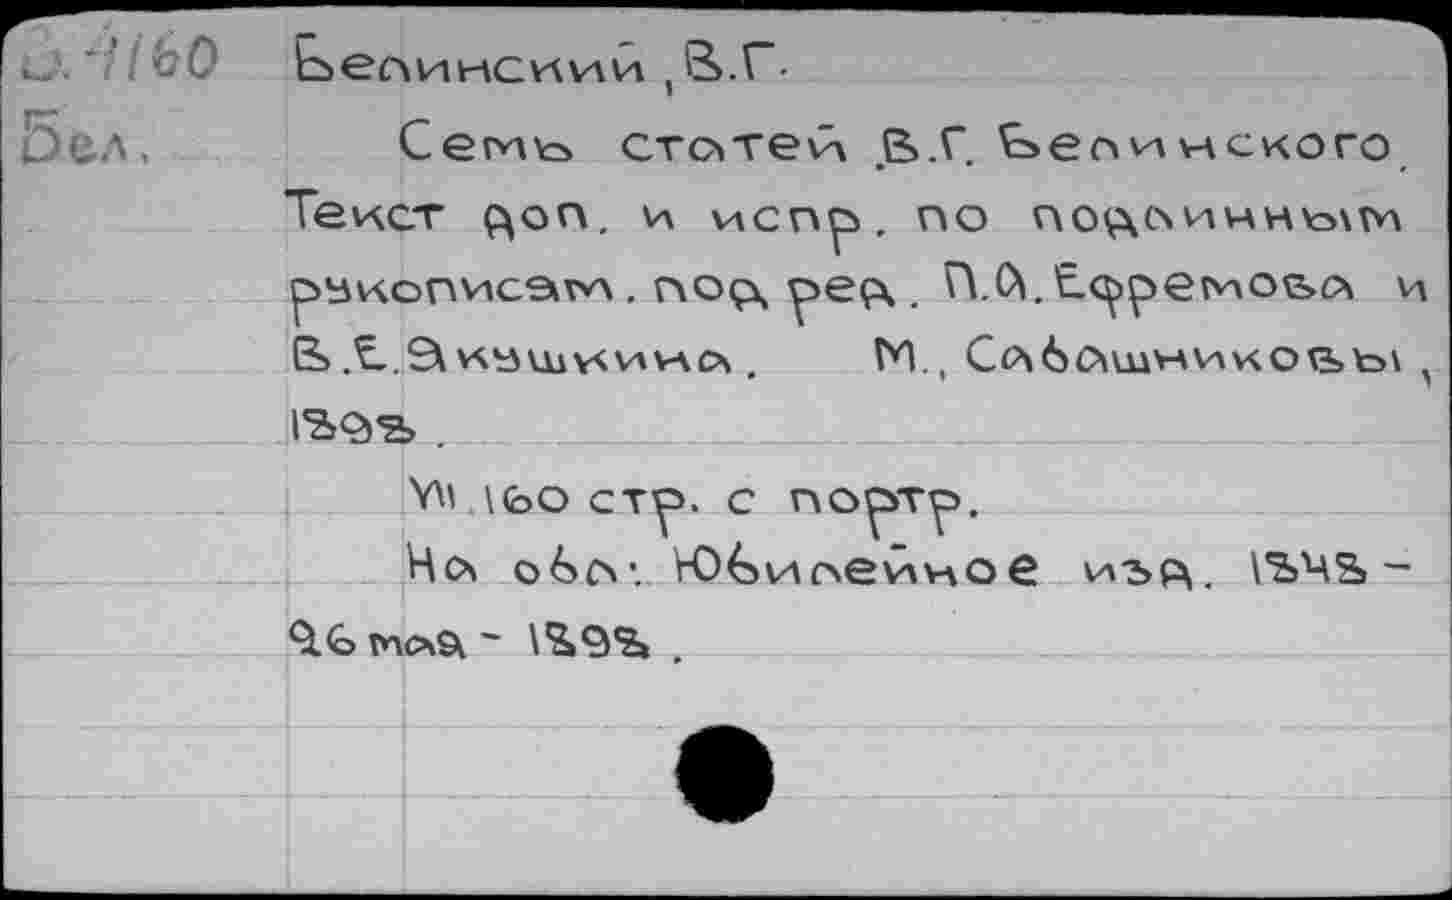 Белинский, В.Г.
Бел. Семь статей В.Г. Белинского.
Текст доп. и испр. по подлинным
рукописям. под ред. П.А. Ефремова и
В.Е. Якушкина. М., Салаашниковы,
1898.
VIII 160 стр. с портр.
На обл: Юбилейное изд. 1848-
26 мая - 1898.